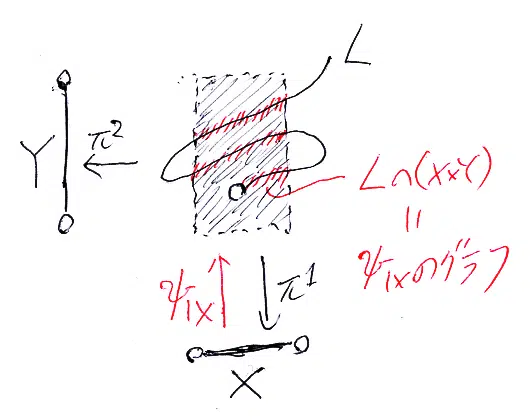 L
Y
π²
L∩(X×Y)
||
ψ|Xのグラフ
ψ|X
π¹
X